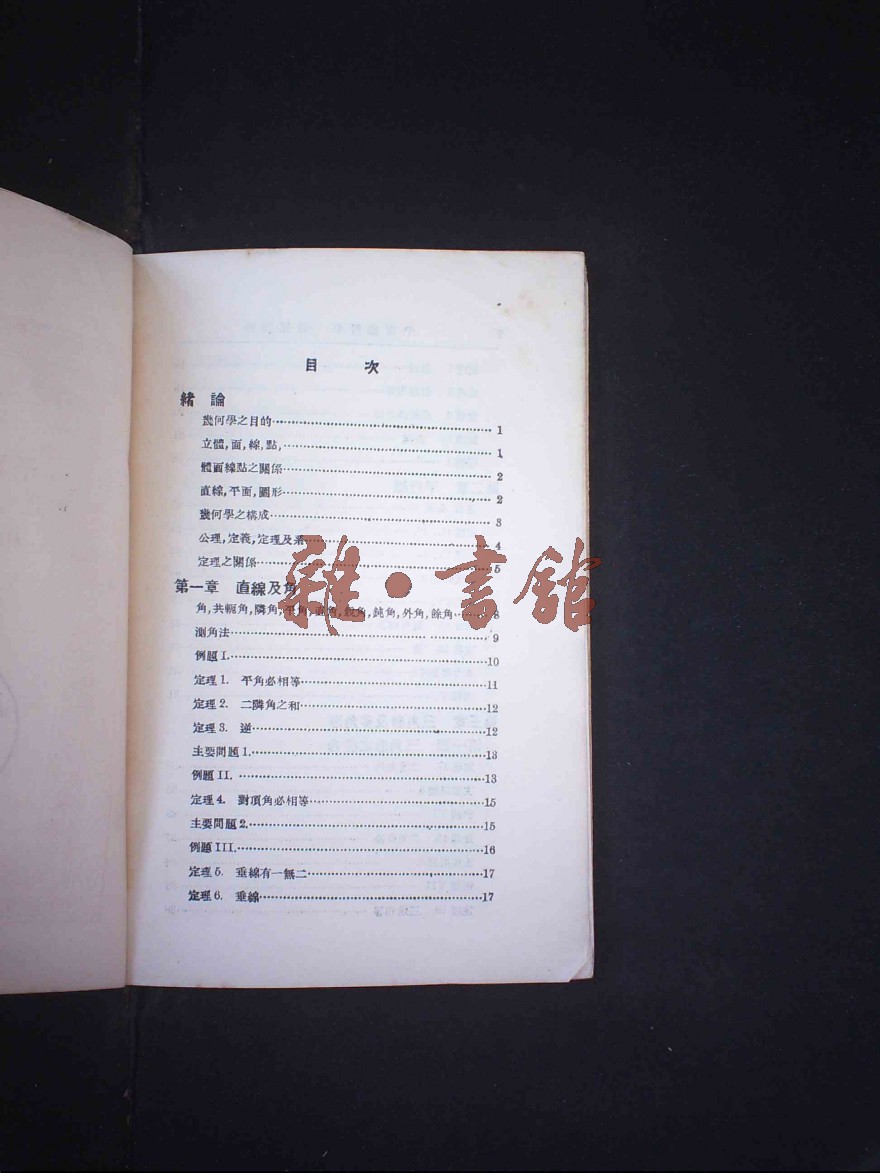 目 次
緒 論
幾何學之目的 1
立體,面,線,點, 1
體面線點之關係 2
直線,平面,圖形 2
幾何學之構成 3
公理,定義,定理及系 4
定理之關係 5
第一章 直線及角
角,共軛角,隣角,平角,直角,銳角,鈍角,外角,餘角 8
測角法 9
例題I. 10
定理1. 平角必相等 11
定理2. 二隣角之和 12
定理3. 逆 12
主要問題1. 13
例題II. 13
定理4. 對頂角必相等 15
主要問題2. 15
例題III. 16
定理5. 垂線有一無二 17
定理6. 垂線 17
雜·書館